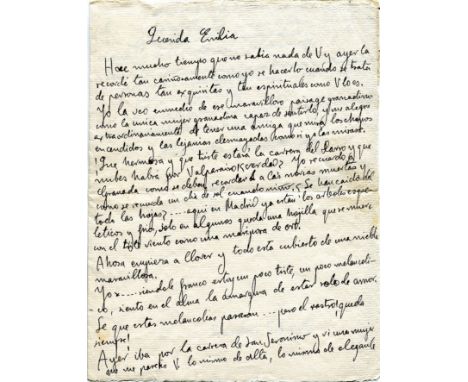 Querida Emilia
Hace mucho tiempo que no sabía nada de V y ayer la
recordé tan cariñosamente como yo se hacerlo cuando se trata
de personas tan exquisitas y tan espirituales como V lo es.
Yo la veo enmedio de ese maravilloso paisage granadino
como la unica muger granadina capaz de sentirlo, y me alegro
extraordinariamente de tener una amiga que mira los chopos
encendidos y las lejanias desmayadas
¡Que hermosa y que triste estará la carrera del Darro y que
nubes habrá por Valparaiso ¿verdad? Yo recuerdo á
Granada como se deben recordar á las novias muertas y
como se recuerda un dia de sol cuando niño. ¿Se han caido del
todo las hojas?.....aqui en Madrid ya están los arboles esque-
leticos y frio, solo en algunos queda una hojilla que se mueve
con el triste viento como una mariposa de oro.
Ahora empieza a llover y todo esta cubierto de una niebla
maravillosa.
Yo ..... siendole franco estoy un poco triste, un poco melancoli-
co, siento en el alma la amargura de estar solo de amor.
Se que estas melancolias pasaran ....pero el rastro! queda
siempre!
Ayer iba por la carrera de San Jeronimo y vi una muger
que me pareció V. lo mismo de alta, lo mismo de elegante